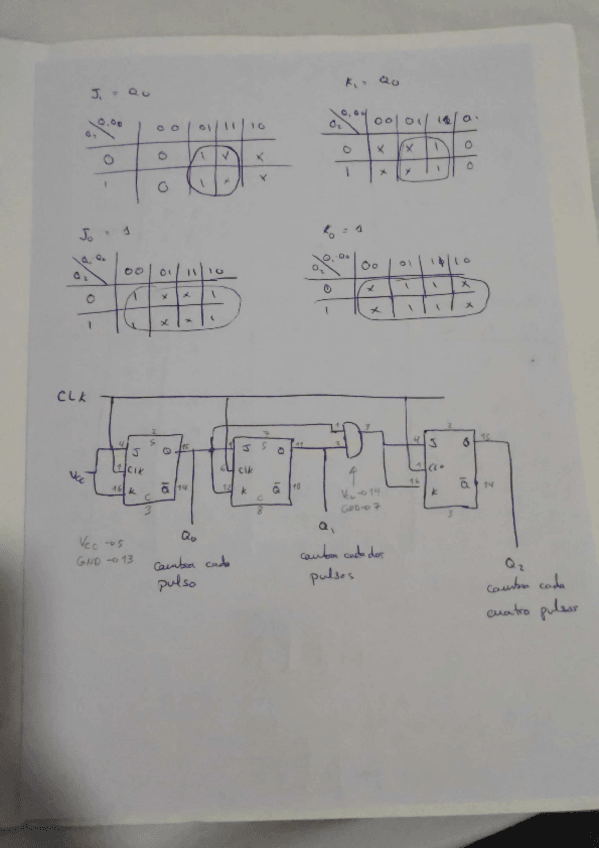 J₁ = Q₀
K₁ = Q₀
Q₂ Q₁Q₀ 00 01 11 10
0 0 1 x x
1 0 1 x x
Q₂ Q₁Q₀ 00 01 11
0 x x 1 0
1 x x 1 0
J₀ = 1
K₀ = 1
Q₂ Q₁Q₀ 00 01 11 10
0 1 x x 1
1 1 x x 1
Q₂ Q₁Q₀ 00 01 11 10
0 x 1 1 x
1 x 1 1 x
CLK
Vcc
4 J 2 S Q 15
1 CLK
16 K C Q̄ 14
3
J 7 S Q 11
6 CLK
12 K C Q̄ 10
8
1 2 3
4 J 2 Q 15
1
16 K Q̄ 14
3
Vcc → 14
GND → 7
Vcc → 5
GND → 13
Q₀
cambia cada
pulso
Q₁
cambia cada dos
pulsos
Q₂
cambia cada
cuatro pulsos